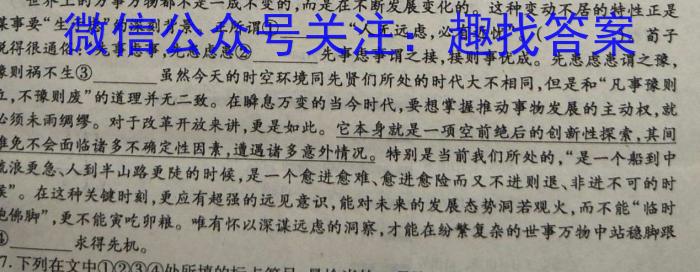 世界上的万事万物都不是一成不变的,而是在不断发展变化的。这种变动不居的特性正是
谋事要
微信公众号关注:趣找答案
荀子
说得很通俗
先事虑事谓之接,接则事优成。先患虑患谓之豫,
豫则祸不生③______虽然今天的时空环境同先贤们所处的时代大不相同,但是和“凡事豫则
立,不豫则废”的道理并无二致。在瞬息万变的当今时代,要想掌握推动事物发展的主动权,就
必须未雨绸缪。对于改革开放来讲,更是如此。它本身就是一项空前绝后的创新性探索,其间
难免不会面临诸多不确定性因素,遭遇诸多意外情况。特别是当前我们所处的,“是一个船到中
流浪更急、人到半山路更陡的时候,是一个愈进愈难、愈进愈险而又不进则退、非进不可的时
候”。在这种关键时刻,更应有超强的远见意识,能对未来的发展态势洞若观火,而不能“临时
抱佛脚”,更不能寅吃卯粮。唯有怀以深谋远虑的洞察,才能在纷繁复杂的世事万物中站稳脚跟
④______求得先机。
7.下列在文中①②③④处所填的标点符号,最恰当的